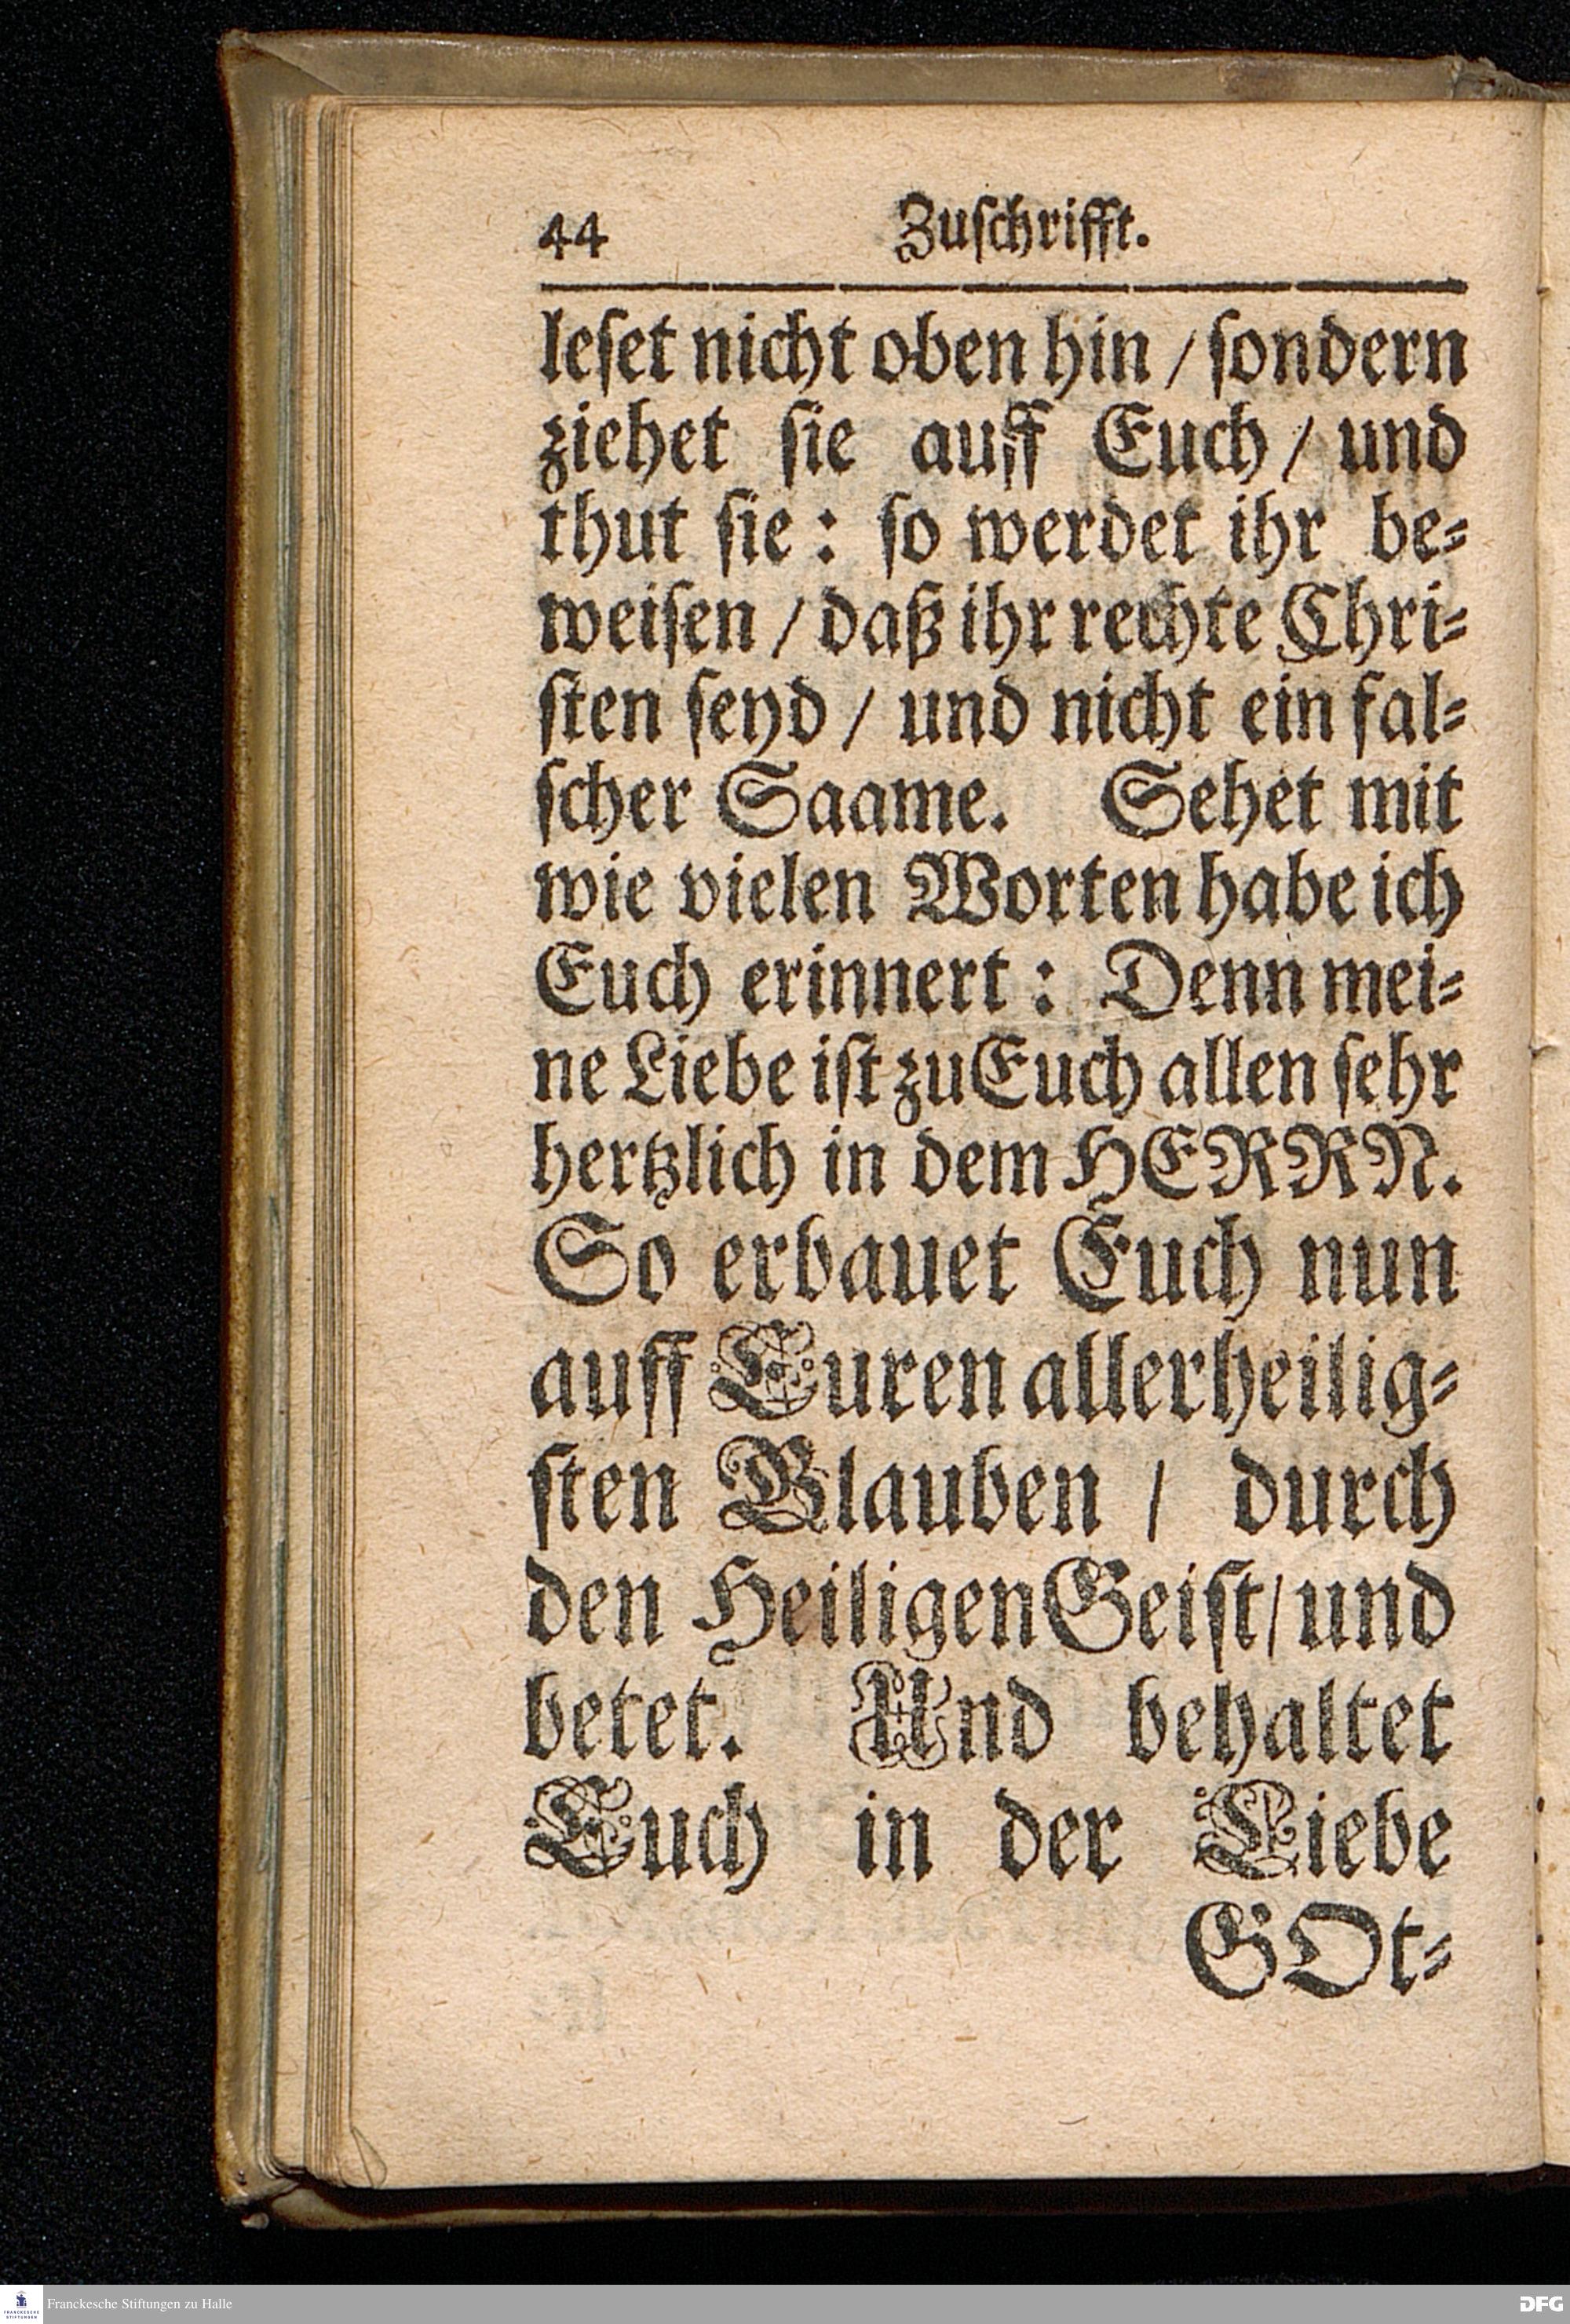 44 Zuſchrifft.
leſet nicht oben hin / ſondern
ziehet ſie auff Euch / und
thut ſie: ſo werdet ihr be⸗
weiſen / daß ihr rechte Chri⸗
ſten ſeyd / und nicht ein fal⸗
ſcher Saame. Sehet mit
wie vielen Worten habe ich
Euch erinnert: Denn mei⸗
ne Liebe iſt zu Euch allen ſehr
hertzlich in dem HERRN.
So erbauet Euch nun
auff Euren allerheilig⸗
ſten Glauben / durch
den Heiligen Geiſt / und
betet. Und behaltet
Euch in der Liebe
GOt⸗
FRANCKESCHE STIFTUNGEN
Franckesche Stiftungen zu Halle
DFG